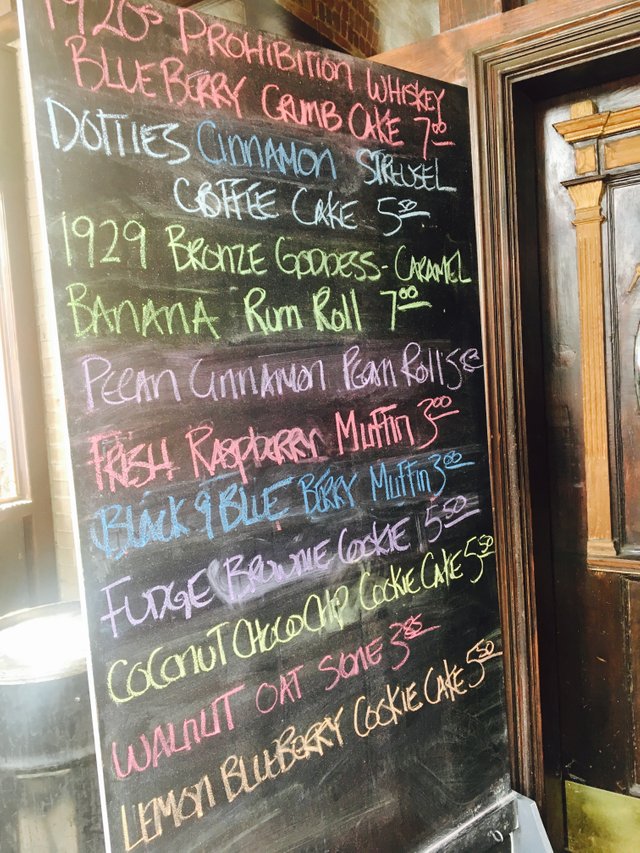 1920s PROHIBITION WHISKEY
BLUEBERRY CRUMB CAKE 7.00
DOTTIES CINNAMON STREUSEL
COFFEE CAKE 5.50
1929 BRONZE GODDESS - CARAMEL
BANANA Rum Roll 7.00
PECAN CINNAMON PECAN Roll 5.50
FRESH RASPBERRY MUFFIN 3.00
BLACK & BLUE BERRY MUFFIN 3.00
FUDGE BROWNIE COOKIE 5.50
COCONUT CHOCO CHIP COOKIE CAKE 5.50
WALNUT OAT SCONE 3.85
LEMON BLUEBERRY COOKIE CAKE 5.50